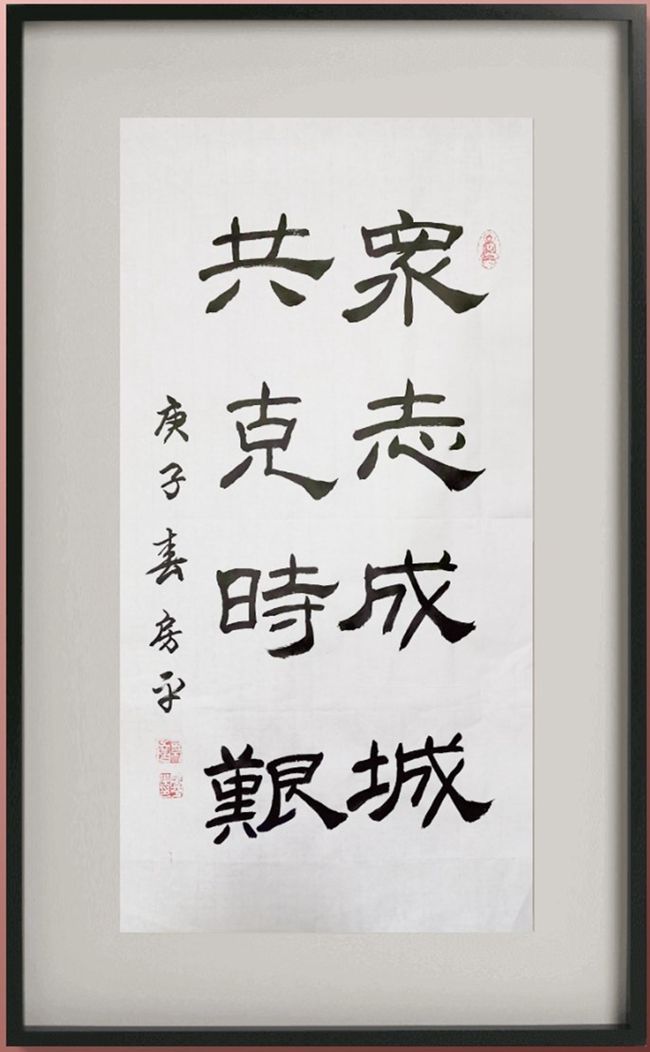 眾志成城
共克時艱
庚子春房平